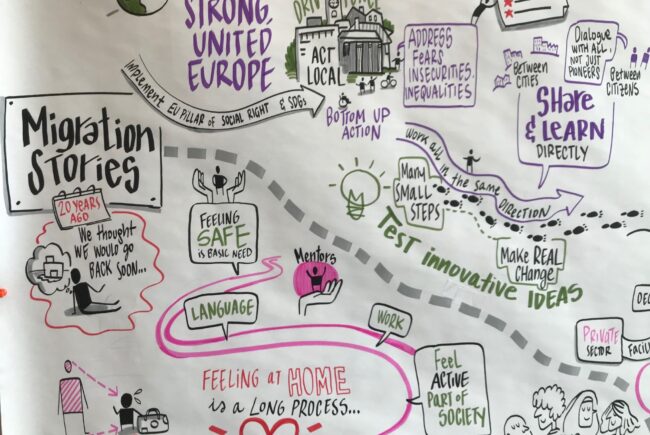 STRONG,
UNITED
EUROPE
ACT
LOCAL
ADDRESS
FEARS
INSECURITIES,
INEQUALITIES.
DIALOGUE
WITH ALL,
NOT JUST
PIONEERS
BETWEEN
CITIES
BETWEEN
CITIZENS
Share
& LEARN
DIRECTLY
Implement EU PILLAR OF SOCIAL RIGHT & SDGs
BOTTOM UP
ACTION
Work all in the same DIRECTION
Migration
Stories
20 YEARS
AGO
We thought
WE WOULD GO
BACK SOON...
FEELING
SAFE
IS BASIC NEED
Many
SMALL
STEPS
TEST innovative IDEAS
Make REAL
CHANGE
Mentors
LANGUAGE
WORK
FEELING AT HOME
is a LONG PROCESS...
Feel
ACTIVE
PART OF
SOCIETY
PRIVATE
SECTOR